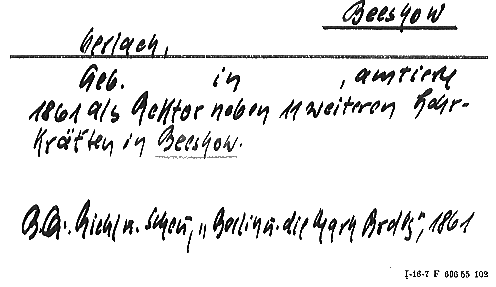 Beeskow
Gerlach,
Geb. in , amtierte
1861 als Rektor neben 11 weiteren Lehr-
kräften in Beeskow.
B.Qu. Riehl u. Scheu, „Berlin u. die Mark Brdbg", 1861
I-16-7 F 606 55 102